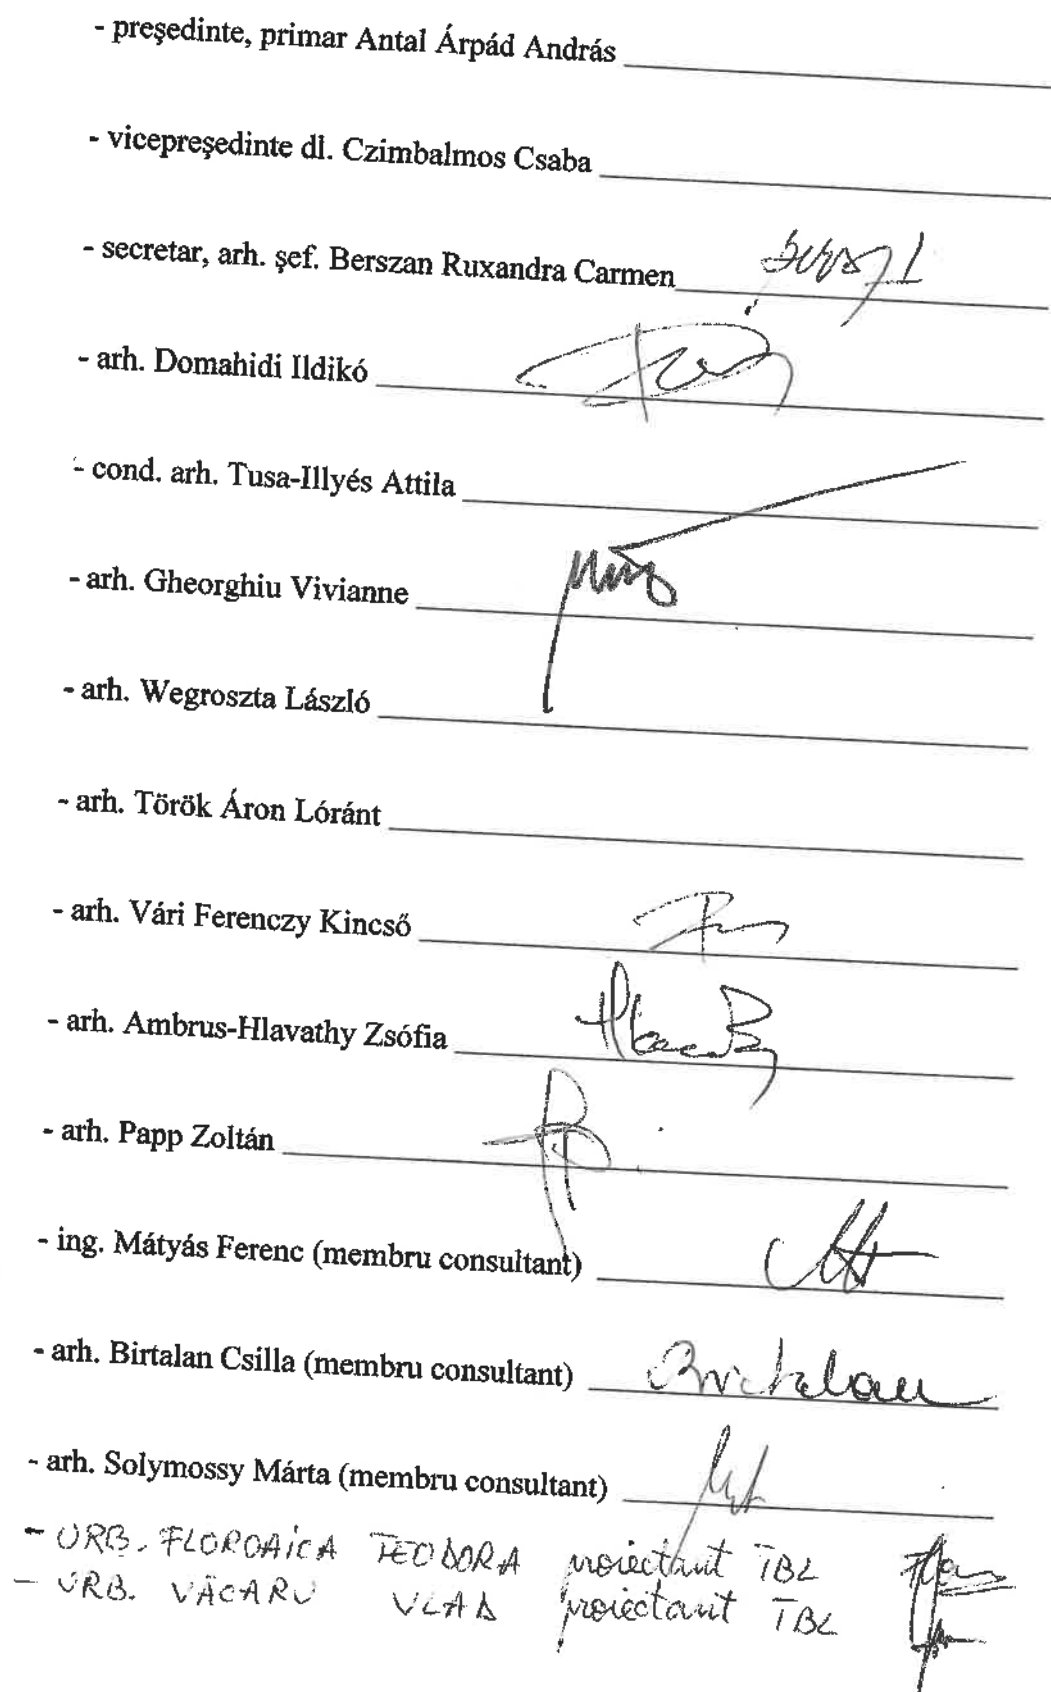 - președinte, primar Antal Árpád András
- vicepreședinte dl. Czimbalmos Csaba
- secretar, arh. șef. Berszan Ruxandra Carmen
- arh. Domahidi Ildikó
- cond. arh. Tusa-Illyés Attila
- arh. Gheorghiu Vivianne
- arh. Wegroszta László
- arh. Török Áron Lóránt
- arh. Vári Ferenczy Kincső
- arh. Ambrus-Hlavathy Zsófia
- arh. Papp Zoltán
- ing. Mátyás Ferenc (membru consultant)
- arh. Birtalan Csilla (membru consultant) Birtalan
- arh. Solymossy Márta (membru consultant)
- URB. FLOROAICA TEODORA proiectant TBL
- URB. VĂCARU VLAD proiectant TBL